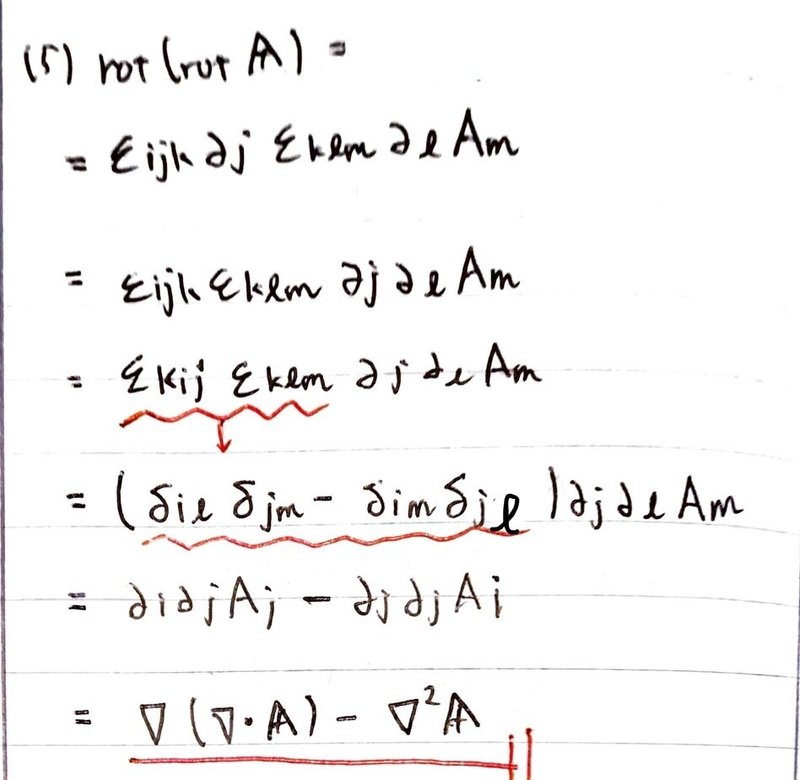 (5) rot (rot 𝔸) =
= εijk ∂j εklm ∂l Am
= εijk εklm ∂j ∂l Am
= εkij εklm ∂j ∂l Am
= (δil δjm - δim δjl) ∂j ∂l Am
= ∂i ∂j Aj - ∂j ∂j Ai
= ∇ (∇·𝔸) - ∇²𝔸